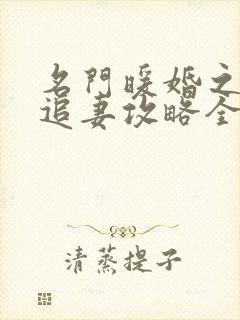 名門暖婚之
追妻攻略全
清蒸提子